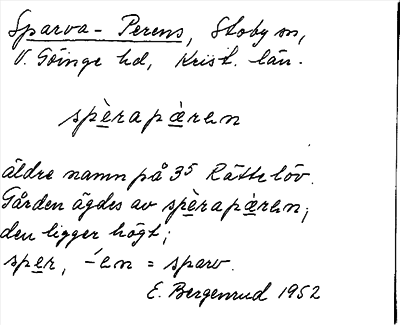 Sparva-Perens, Stoby sn,
V. Göinge hd, Krist. län.
spèrapæ̀ren
äldre namn på 35 Rättelöv.
Gården ägdes av spèrapæ̀ren;
den ligger högt;
sper, -en = sparv.
E. Bergenrud 1952